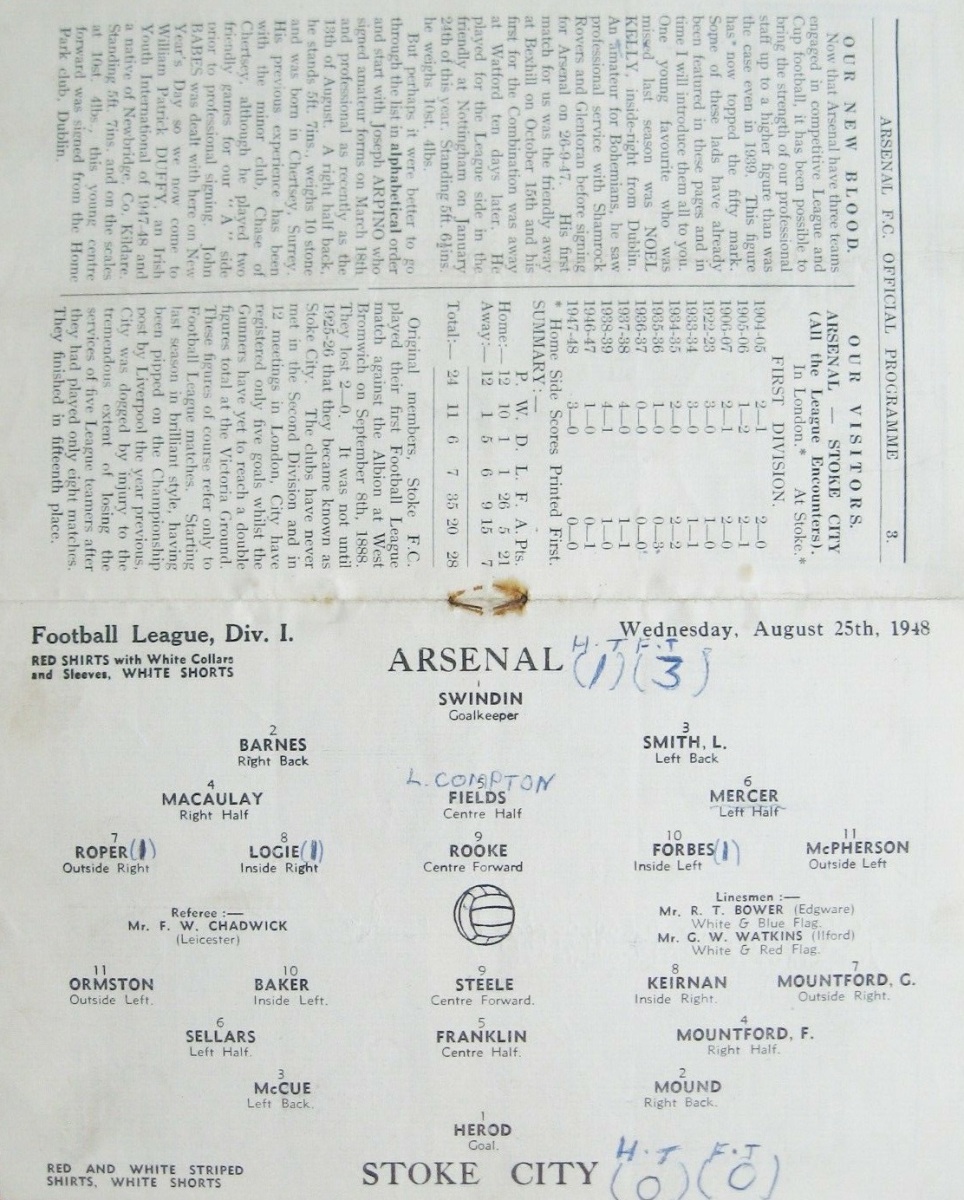 ARSENAL F.C. OFFICIAL PROGRAMME 3.
OUR NEW BLOOD.
Now that Arsenal have three teams
engaged in competitive League and
Cup football, it has been possible to
bring the strength of our professional
staff up to a higher figure than was
the case even in 1939. This figure
has now topped the fifty mark.
Some of these lads have already
been featured in these pages and in
time I will introduce them all to you.
One young favourite who was
missed last season was NOEL
KELLY, inside-right from Dublin.
An amateur for Bohemians, he saw
professional service with Shamrock
Rovers and Glentoran before signing
for Arsenal on 26-9-47. His first
match for us was the friendly away
at Bexhill on October 15th and his
first for the Combination was away
at Watford ten days later. He
played for the League side in the
friendly at Nottingham on January
24th of this year. Standing 5ft. 6½ins.
he weighs 10st. 4lbs.
But perhaps it were better to go
through the list in alphabetical order
and start with Joseph ARPINO who
signed amateur forms on March 18th
and professional as recently as the
13th of August. A right half back,
he stands 5ft. 7ins., weighs 10 stone
and was born in Chertsey, Surrey.
His previous experience has been
with the minor club, Chase of
Chertsey, although he played two
friendly games for our "A" side
prior to professional signing. John
BABES was dealt with here on New
Year's Day so we now come to
William Patrick DUFFY, an Irish
Youth International of 1947-48 and
a native of Newbridge, Co. Kildare.
Standing 5ft. 7ins. and on the scales
at 10st. 4lbs., this young centre
forward was signed from the Home
Park club, Dublin.
OUR VISITORS.
ARSENAL — STOKE CITY
(All the League Encounters).
In London.* At Stoke.*
FIRST DIVISION.
1904-05 2—1 2—0
1905-06 1—2 2—1
1906-07 2—1 2—1
1922-23 3—0 1—0
1933-34 3—0 1—1
1934-35 2—0 2—2
1935-36 1—0 0—3
1936-37 0—0 0—0
1937-38 4—0 1—1
1938-39 4—1 1—0
1946-47 1—0 0—1
1947-48 3—0 0—0
* Home Side Scores Printed First.
SUMMARY:—
P. W. D. L. F. A. Pts.
Home:— 12 10 1 1 26 5 21
Away:— 12 1 5 6 9 15 7
Total:— 24 11 6 7 35 20 28
Original members, Stoke F.C.
played their first Football League
match against the Albion at West
Bromwich on September 8th, 1888.
They lost 2—0. It was not until
1925-26 that they became known as
Stoke City. The clubs have never
met in the Second Division and in
12 meetings in London, City have
registered only five goals whilst the
Gunners have yet to reach a double
figures total at the Victoria Ground.
These figures of course refer only to
Football League matches. Starting
last season in brilliant style, having
been pipped on the Championship
post by Liverpool the year previous,
City was dogged by injury to the
tremendous extent of losing the
services of five League teamers after
they had played only eight matches.
They finished in fifteenth place.
Football League, Div. I.
Wednesday, August 25th, 1948
RED SHIRTS with White Collars
and Sleeves, WHITE SHORTS
ARSENAL H.T (1) F.T (3)
1
SWINDIN
Goalkeeper
2 3
BARNES SMITH, L.
Right Back Left Back
L. COMPTON
4 5 6
MACAULAY FIELDS MERCER
Right Half Centre Half Left Half
7 8 9 10 11
ROPER (1) LOGIE (1) ROOKE FORBES (1) McPHERSON
Outside Right Inside Right Centre Forward Inside Left Outside Left
Referee :—
Mr. F. W. CHADWICK
(Leicester)
Linesmen :—
Mr. R. T. BOWER (Edgware)
White & Blue Flag.
Mr. G. W. WATKINS (Ilford)
White & Red Flag.
11 10 9 8 7
ORMSTON BAKER STEELE KEIRNAN MOUNTFORD, G.
Outside Left. Inside Left. Centre Forward. Inside Right. Outside Right.
6 5 4
SELLARS FRANKLIN MOUNTFORD, F.
Left Half. Centre Half. Right Half.
3 2
McCUE MOUND
Left Back. Right Back.
1
HEROD
Goal.
RED AND WHITE STRIPED
SHIRTS, WHITE SHORTS
STOKE CITY H.T (0) F.T (0)